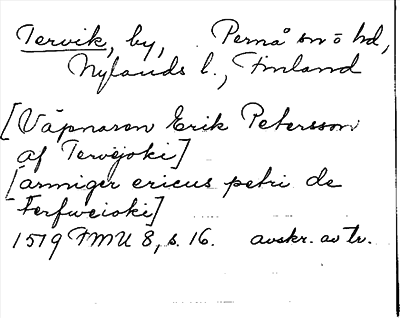 Tervik, by, Pernå sn o hd,
Nylands l., Finland
[Väpnaren Erik Petersson
af Tervejoki]
[armiger ericus petri de
Ferfweioki]
1519 FMU 8, s. 16. avskr. av tr.